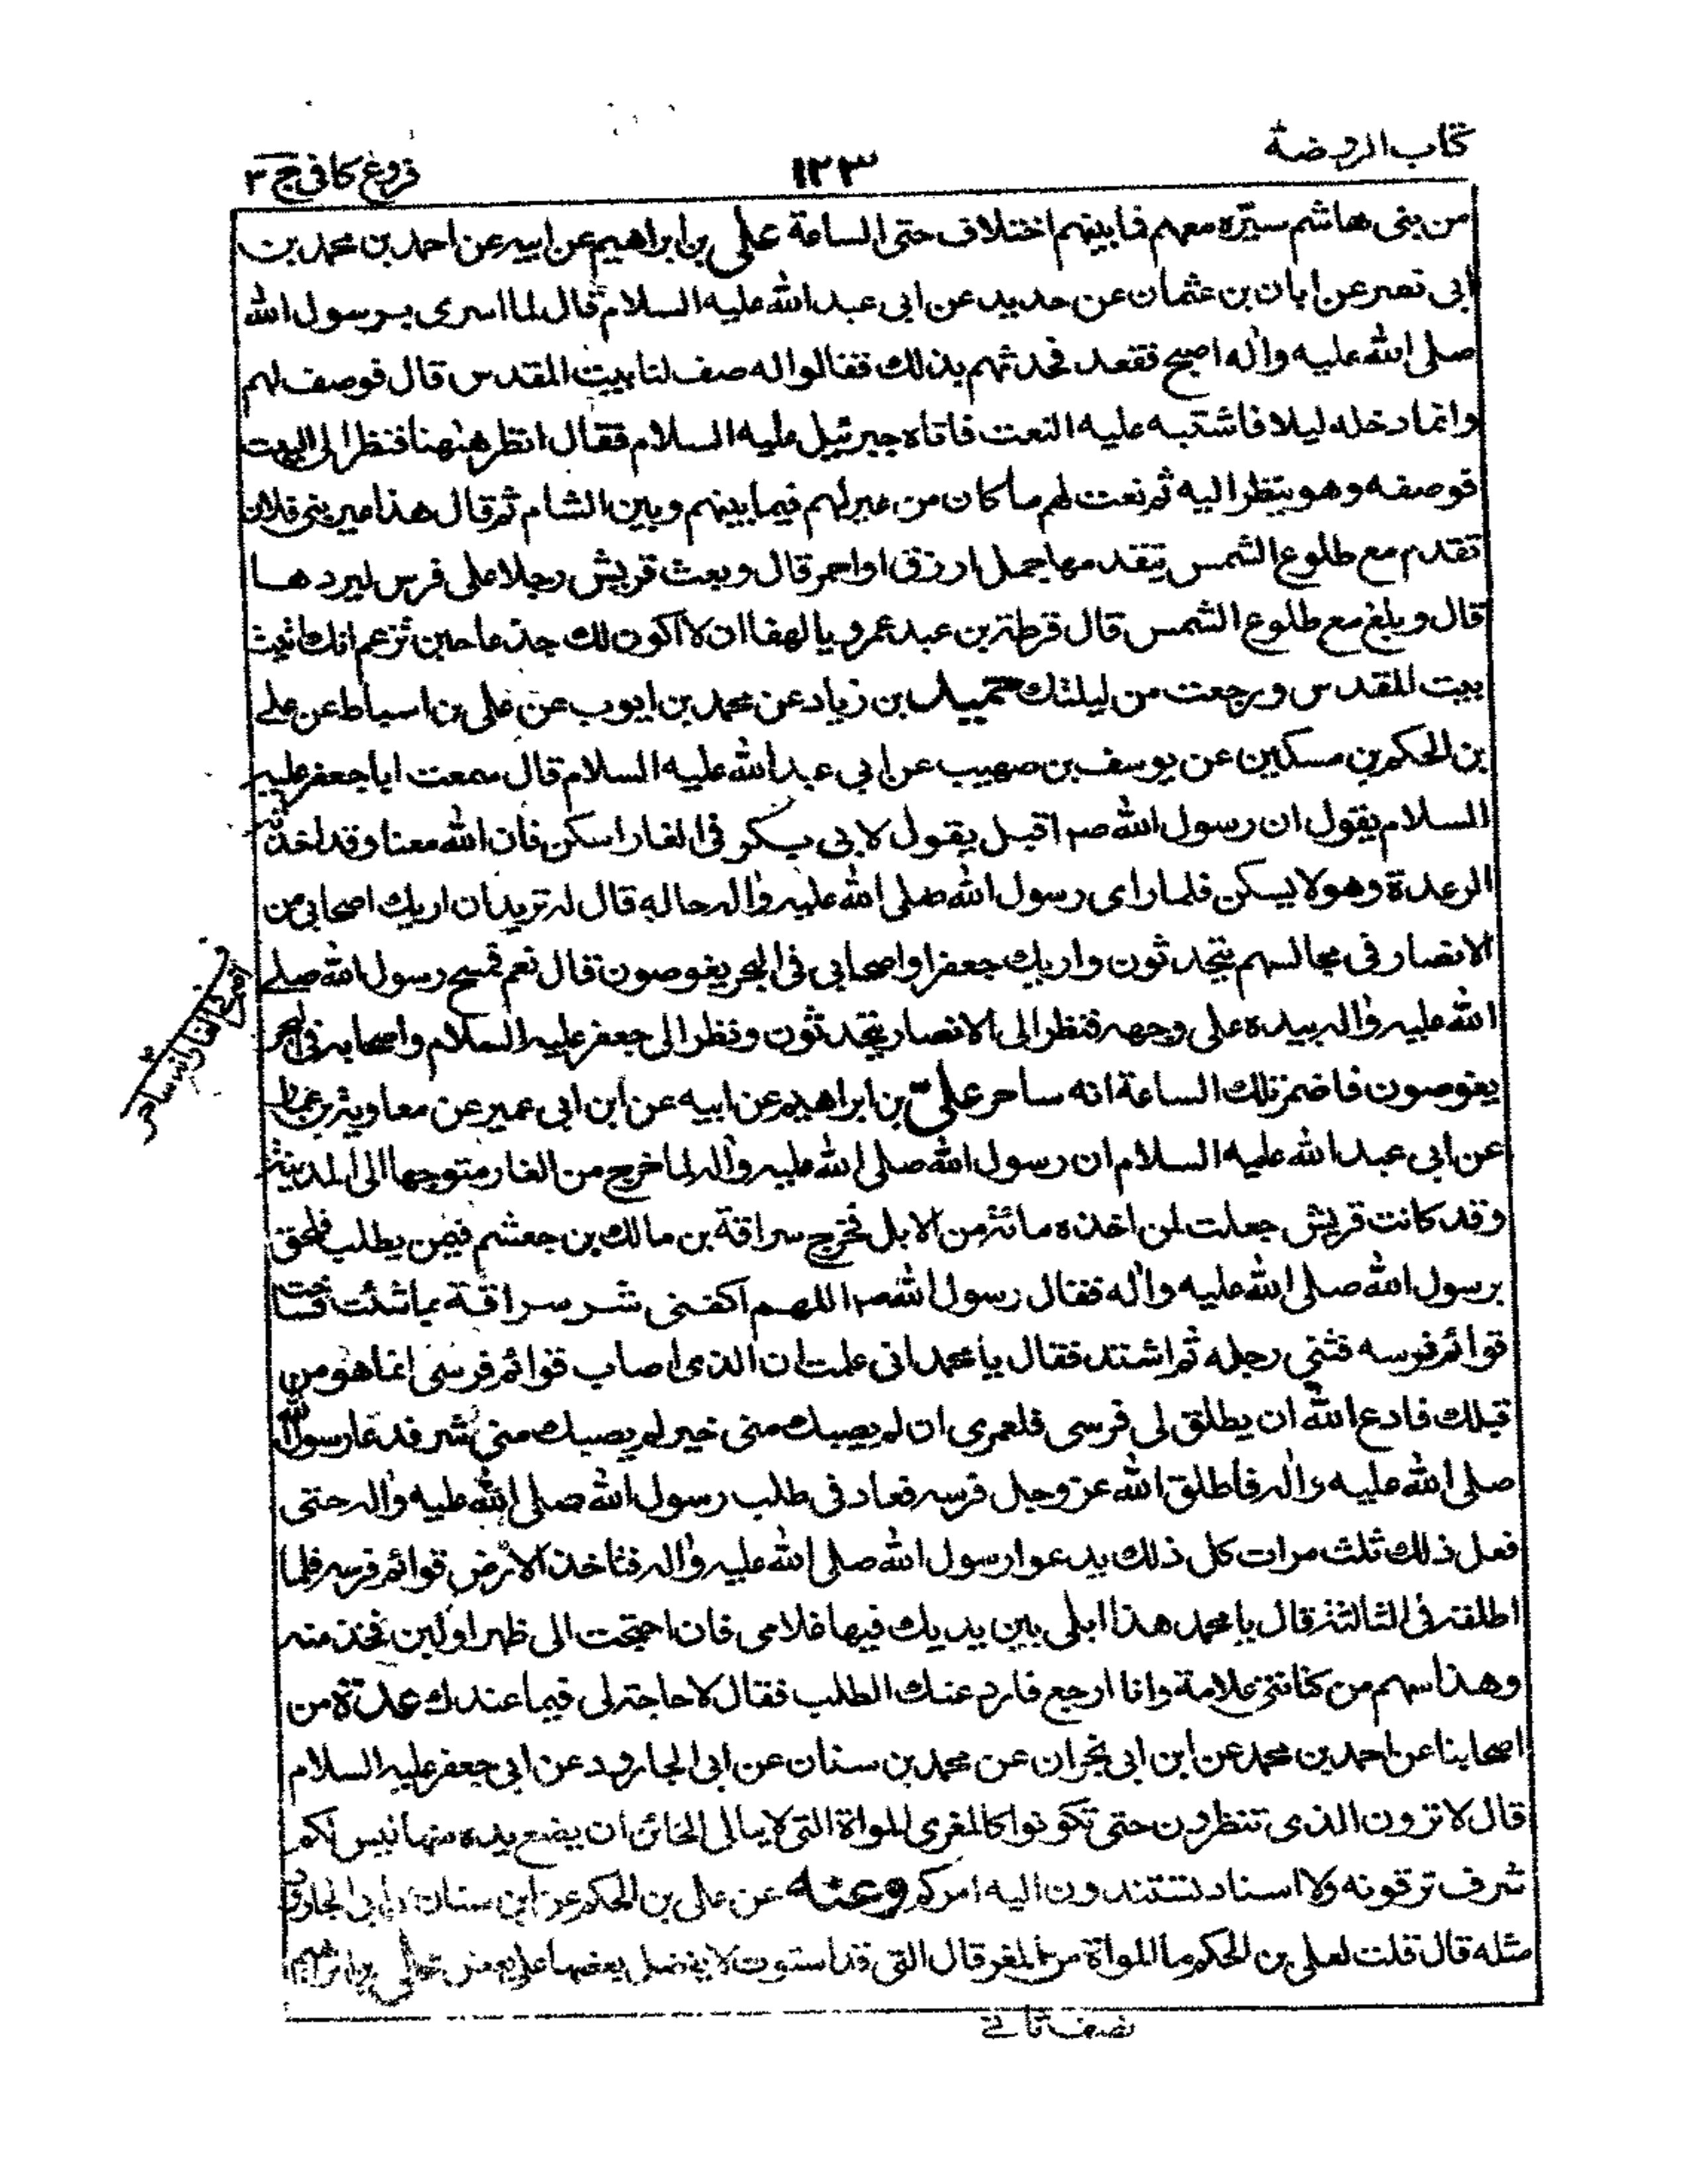 كتاب الروضة
١٢٣
فروع كافى ج ٣
من بنى هاشم سيّره معهم فما بينهم اختلاف حتى الساعة على بن ابراهيم عن ابيه عن احمد بن محمد بن
ابى نصر عن ابان بن عثمان عن حديد عن ابى عبد الله عليه السلام قال لما اسرى برسول الله
صلى الله عليه واله اصبح فقعد فحدثهم بذلك فقالوا له صف لنا بيت المقدس قال فوصف لهم
وانما دخله ليلا فاشتبه عليه النعت فاتاه جبرئيل عليه السلام فقال انظر ههنا فنظر الى البيت
فوصفه وهو ينظر اليه ثم نعت لهم ما كان من عير لهم فيما بينهم وبين الشام ثم قال هذا عير بنى فلان
تقدم مع طلوع الشمس يتقدمها جمل ارزق او احمر قال وبعث قريش رجلا على فرس ليردها
قال وبلغ مع طلوع الشمس قال قرطة بن عبد عمرو يا لهفا ان لا اكون لك جذعا حين تزعم انك اتيت
بيت المقدس ورجعت من ليلتك حميد بن زياد عن محمد بن ايوب عن على بن اسباط عن على
بن الحكم بن مسكين عن يوسف بن صهيب عن ابى عبد الله عليه السلام قال سمعت ابا جعفر عليه
السلام يقول ان رسول الله ص اقبل يقول لابى بكر فى الغار اسكن فان الله معنا وقد اخذته
الرعدة وهو لا يسكن فلما راى رسول الله صلى الله عليه واله حاله قال له تريد ان اريك اصحابى من
الانصار فى مجالسهم يتحدثون واريك جعفرا واصحابى فى البحر يغوصون قال نعم فمسح رسول الله صلى
الله عليه واله بيده على وجهه فنظر الى الانصار يتحدثون ونظر الى جعفر عليه السلام واصحابه فى البحر
يغوصون فاضمر تلك الساعة انه ساحر على بن ابراهيم عن ابيه عن ابن ابى عمير عن معاوية بن عمار
عن ابى عبد الله عليه السلام ان رسول الله صلى الله عليه واله لما خرج من الغار متوجها الى المدينة
وقد كانت قريش جعلت لمن اخذه مائة من الابل فخرج سراقة بن مالك بن جعشم فيمن يطلب فلحق
برسول الله صلى الله عليه واله فقال رسول الله ص اللهم اكفنى شر سراقة بما شئت فساخت
قوائم فرسه فثنى رجله ثم اشتد فقال يا محمد انى علمت ان الذى اصاب قوائم فرسى انما هو من
قبلك فادع الله ان يطلق لى فرسى فلعمرى ان لم يصبك منى خير لم يصبك منى شر فدعا رسول الله
صلى الله عليه واله فاطلق الله عز وجل فرسه فعاد فى طلب رسول الله صلى الله عليه واله حتى
فعل ذلك ثلث مرات كل ذلك يدعوا رسول الله صلى الله عليه واله فتاخذ الارض قوائم فرسه فلما
اطلقه فى الثالثة قال يا محمد هذا ابلى بين يديك فيها غلامى فان احتجت الى ظهر او لبن فخذ منه
وهذا سهم من كنانتى علامة وانا ارجع فارد عنك الطلب فقال لا حاجة لى فيما عندك عدة من
اصحابنا عن احمد بن محمد عن ابن ابى نجران عن محمد بن سنان عن ابى الجارود عن ابى جعفر عليه السلام
قال لا ترون الذى تنظرون حتى تكونوا كالمغرى المواة التى لا يبالى الخائن ان يضع يده منها ليس لكم
شرف ترقونه ولا اسناد تستندون اليه امركم وعنه عن على بن الحكم عن ابن سنان عن ابى الجارود
مثله قال قلت لعلى بن الحكم ما المواة من المغر قال التى قد استوت لا يفضل بعضها على بعض على بن ابراهيم
نصف ثانے